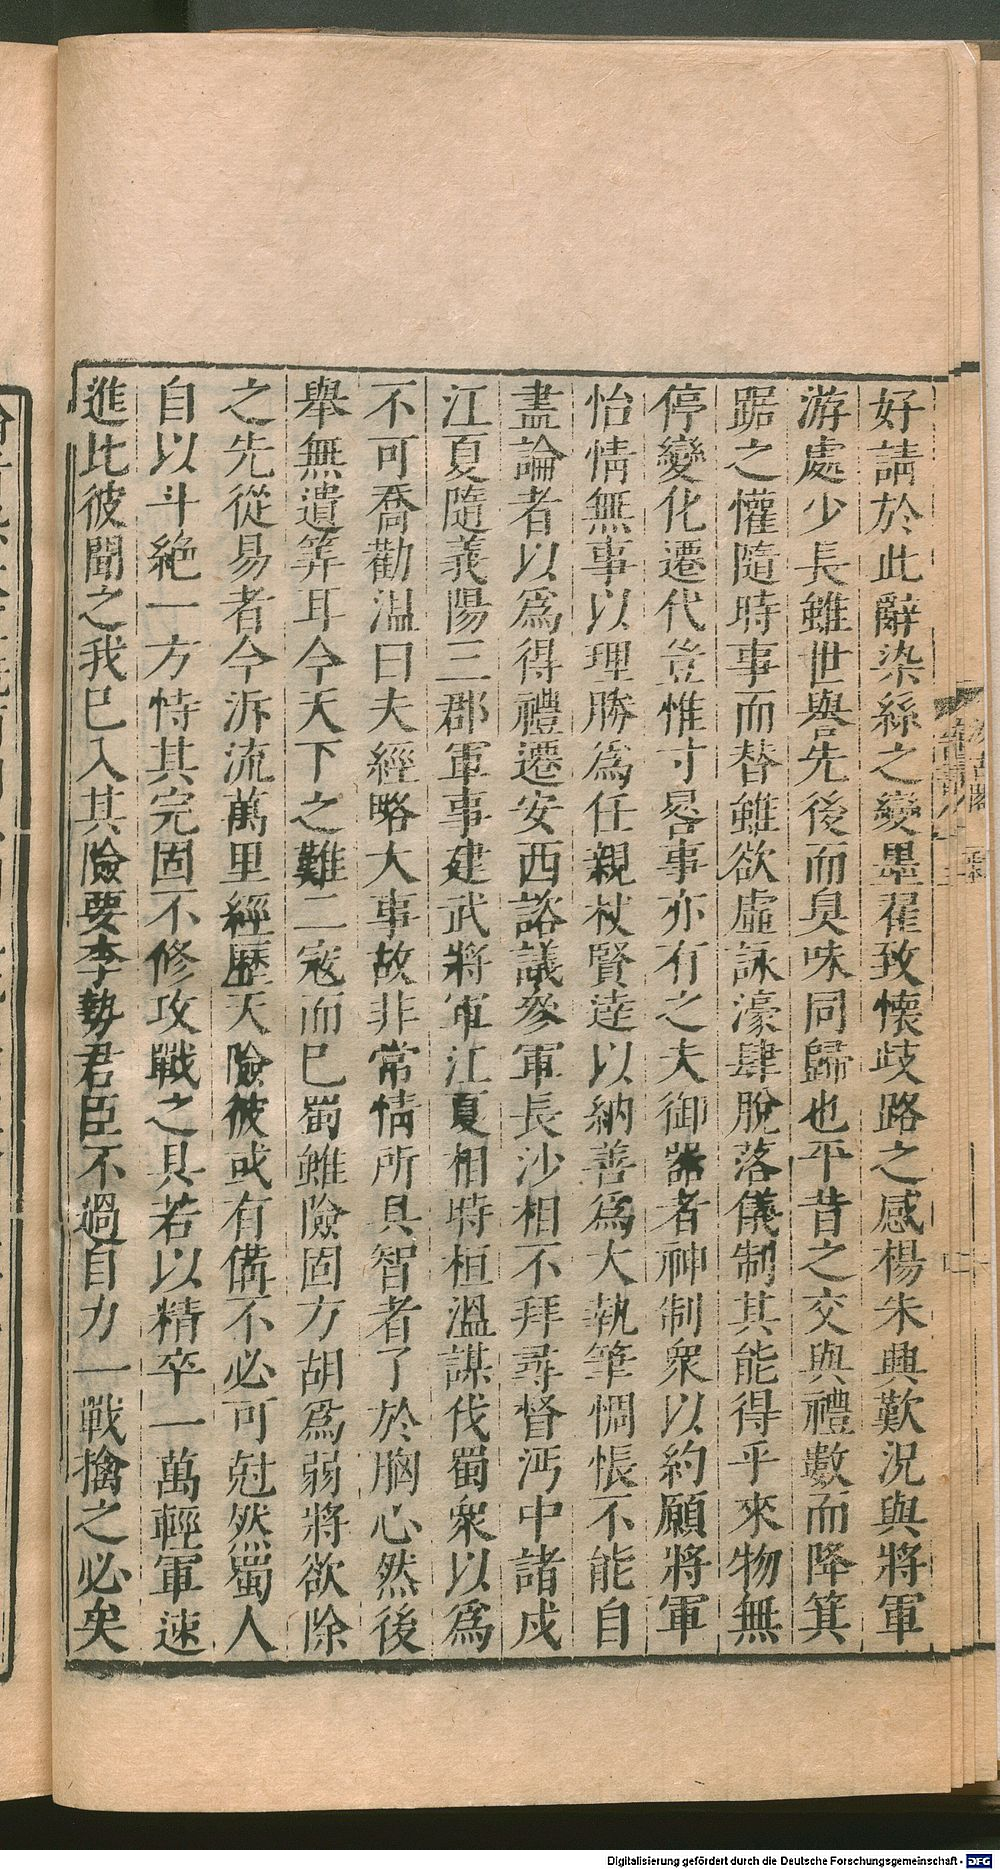 好請於此辭染絲之變墨翟致懷歧路之感楊朱興歎況與將軍
游處少長雖世譽先後而臭味同歸也平昔之交與禮數而降箕
踞之懽隨時事而替雖欲虛詠濠肆脫落儀制其能得乎來物無
停變化遷代豈惟寸晷事亦有之夫御器者神制衆以約願將軍
怡情無事以理勝爲任親杖賢達以納善爲大執筆惆悵不能自
盡論者以爲得禮遷安西諮議參軍長沙相不拜尋督沔中諸戍
江夏隨義陽三郡軍事建武將軍江夏相時桓溫謀伐蜀衆以爲
不可喬勸溫曰夫經略大事故非常情所具智者了於胸心然後
舉無遺筭耳今天下之難二寇而已蜀雖險固方胡爲弱將欲除
之先從易者今泝流萬里經歷天險彼或有備不必可尅然蜀人
自以斗絕一方恃其完固不修攻戰之具若以精卒一萬輕軍速
進比彼聞之我已入其險要李勢君臣不過自力一戰擒之必矣
Digitalisierung gefördert durch die Deutsche Forschungsgemeinschaft - DFG